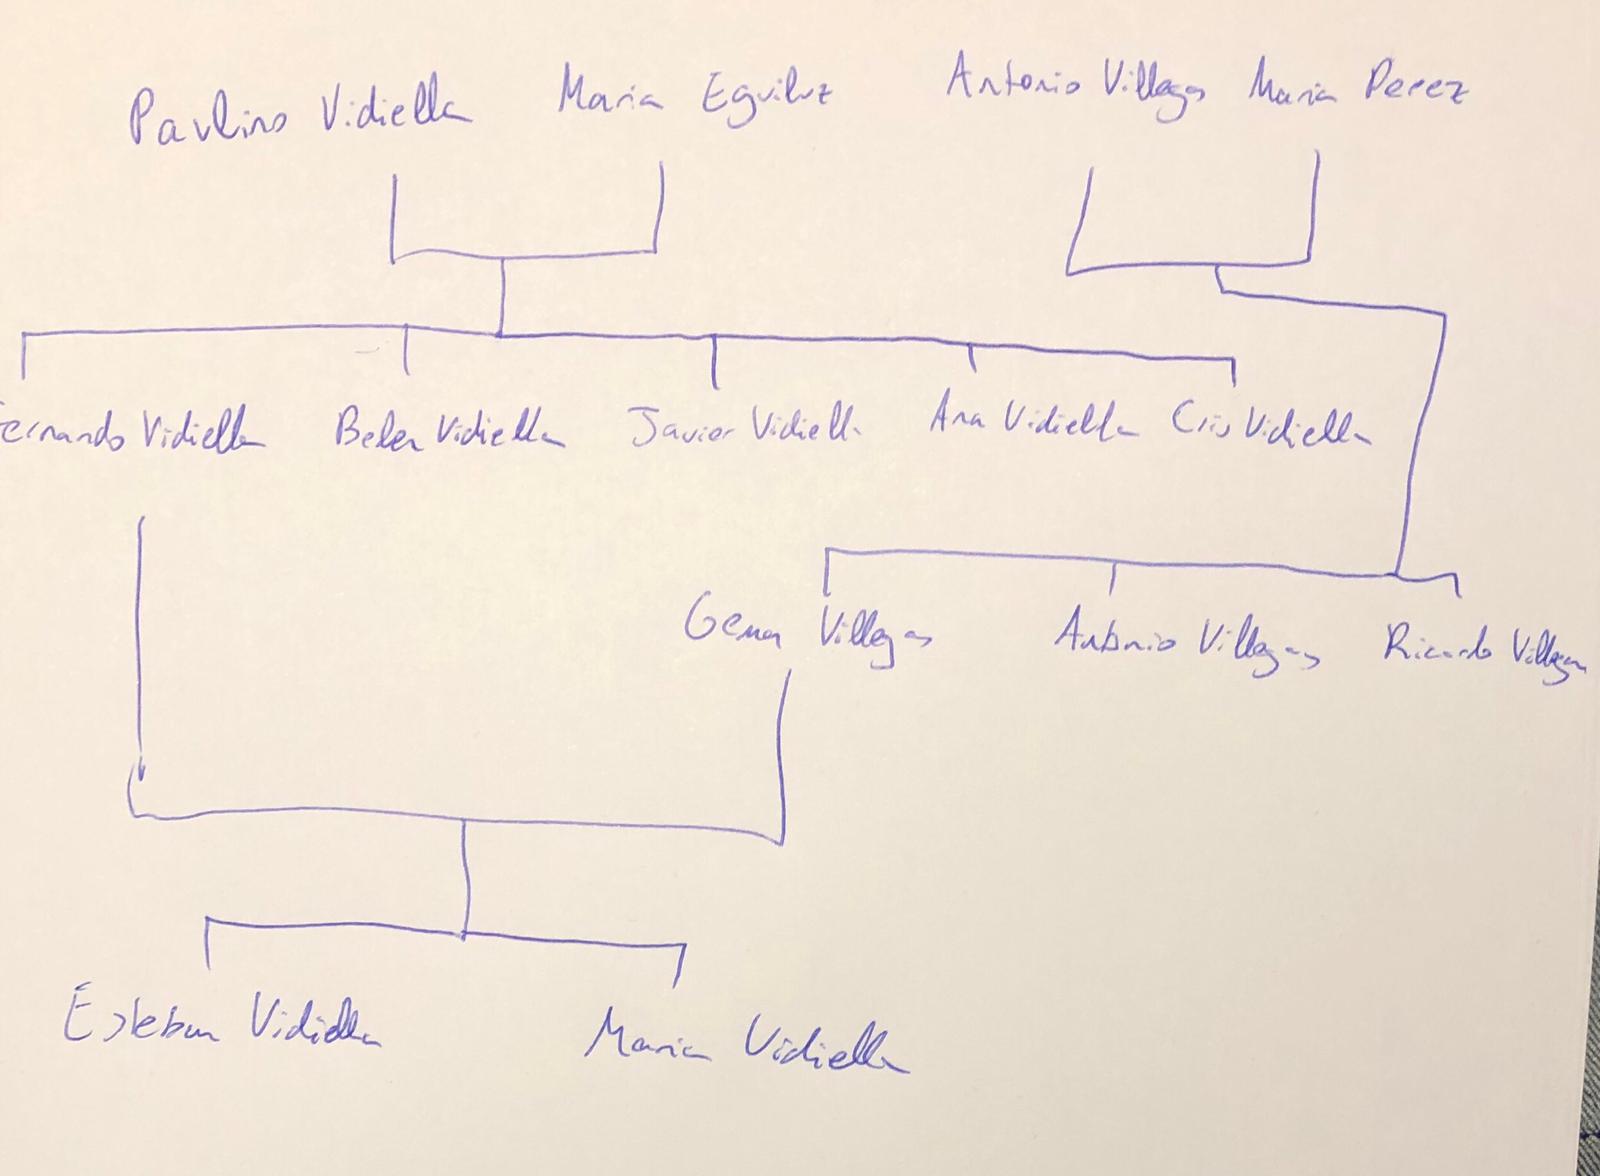 Paulino Vidiella Maria Eguiluz Antonio Villegas Maria Perez
Fernando Vidiella Belen Vidiella Javier Vidiella Ana Vidiella Cris Vidiella
Gema Villegas Antonio Villegas Ricardo Villegas
Esteban Vidiella Maria Vidiella